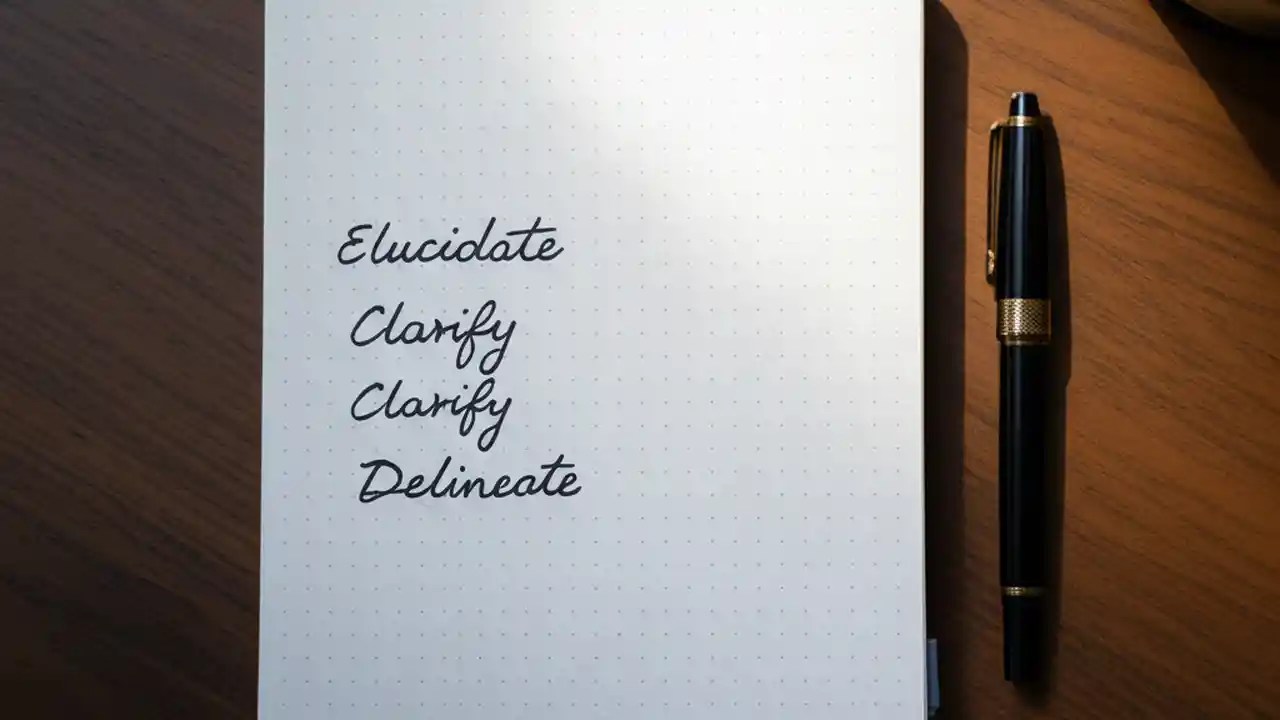 Elucidate
Clarify
Clarify
Delineate